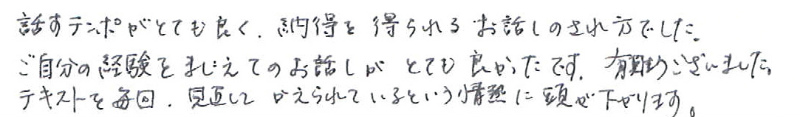 話すテンポがとても良く、納得を得られるお話しのされ方でした。
ご自分の経験をまじえてのお話しがとても良かったです。有難うございました。
テキストを毎回、見直してかえられているという情熱に頭が下がります。